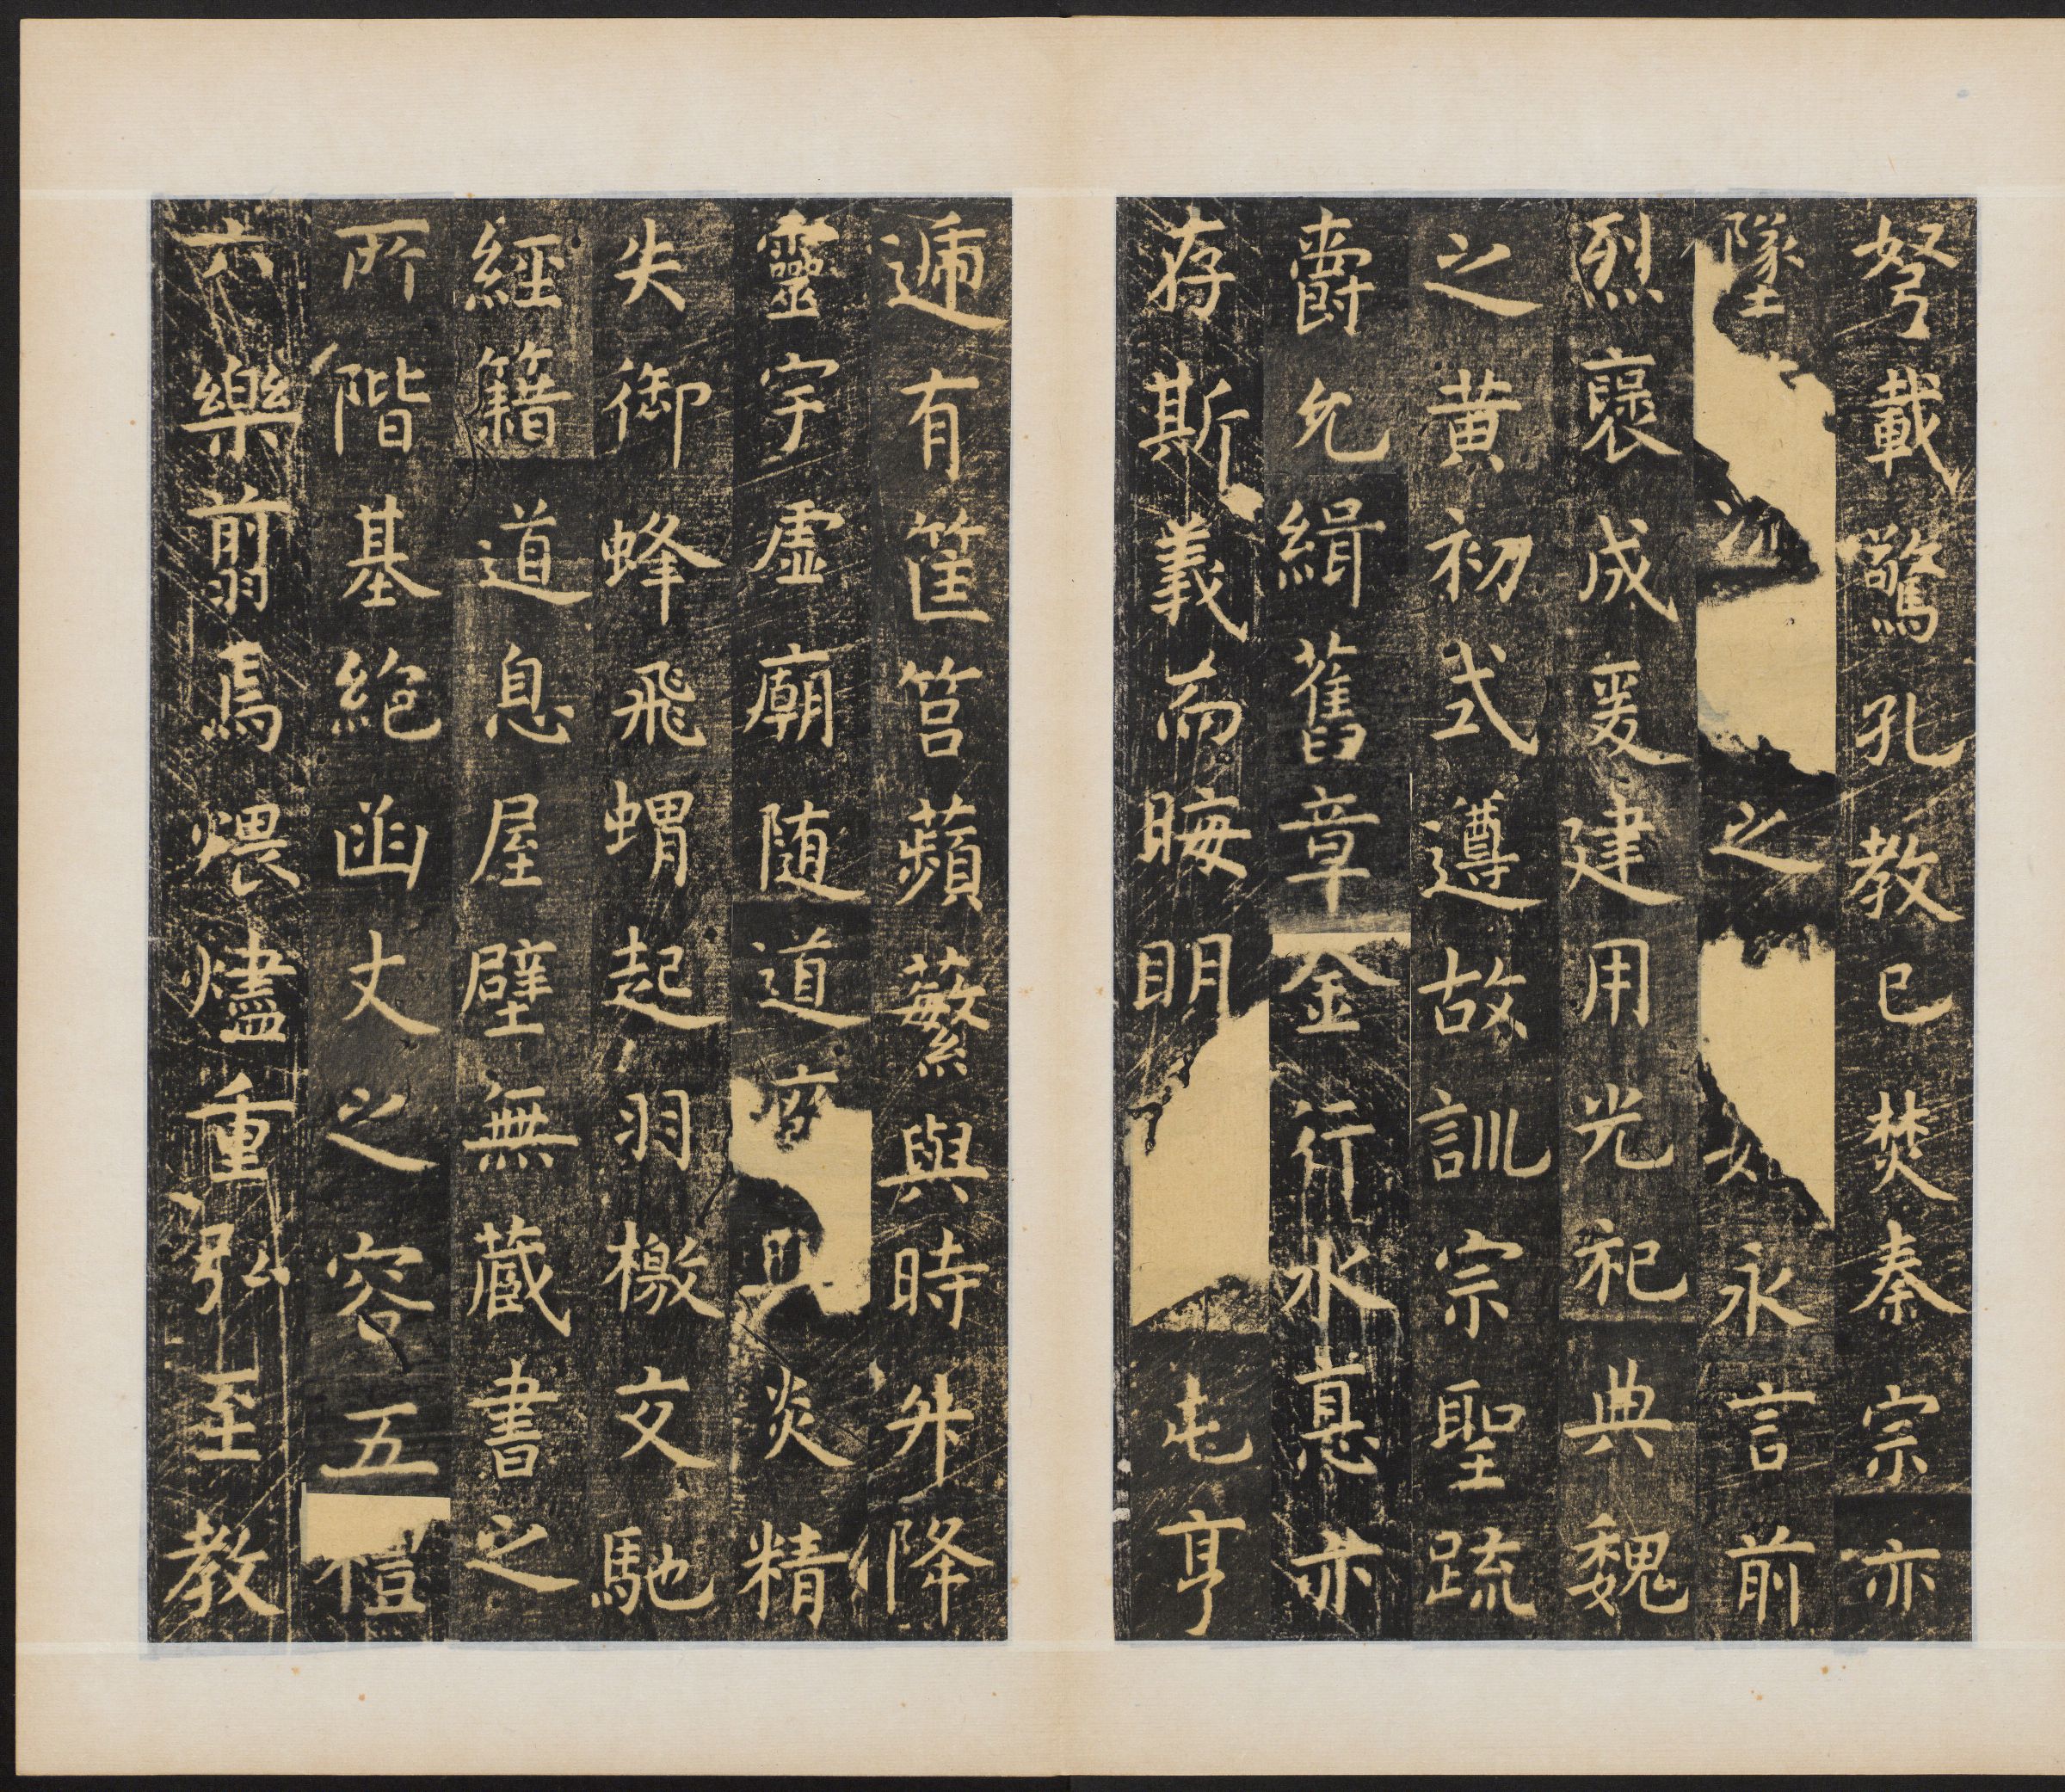 弩載驚孔教已焚秦宗亦
墜之永言前
烈褒成爰建用光祀典魏
之黄初式遵故訓宗聖疏
爵允緝舊章金行水悳亦
存斯義而晦明屯亨
遞有筐筥蘋蘩與時升降
靈宇虛廟随道炎精
失御蜂飛蝟起羽檄交馳
經籍道息屋壁無藏書之
所階基絶函丈之容五禮
六樂翦焉煨燼重弘至教